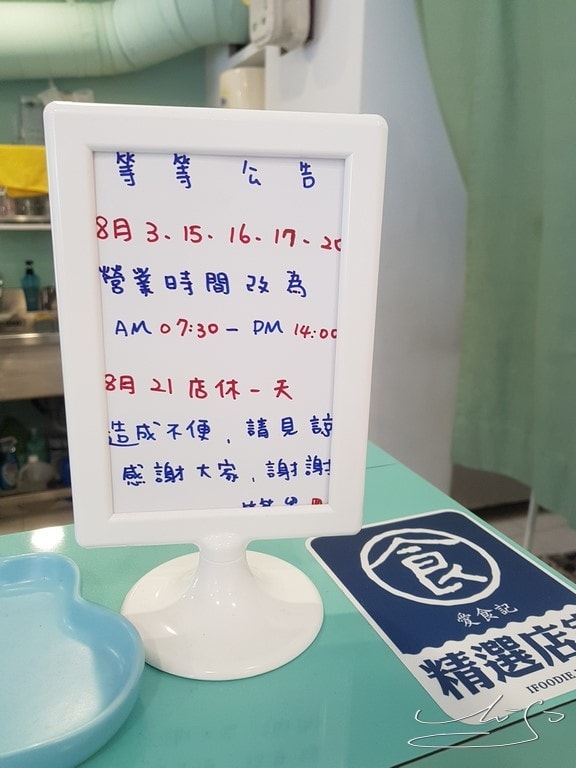 等等 公告
8月 3、15、16、17、20
營業時間改為
AM 07:30 - PM 14:00
8月 21 店休一天
造成不便，請見諒
感謝大家，謝謝
食
愛食記
精選店家
IFOODIE.